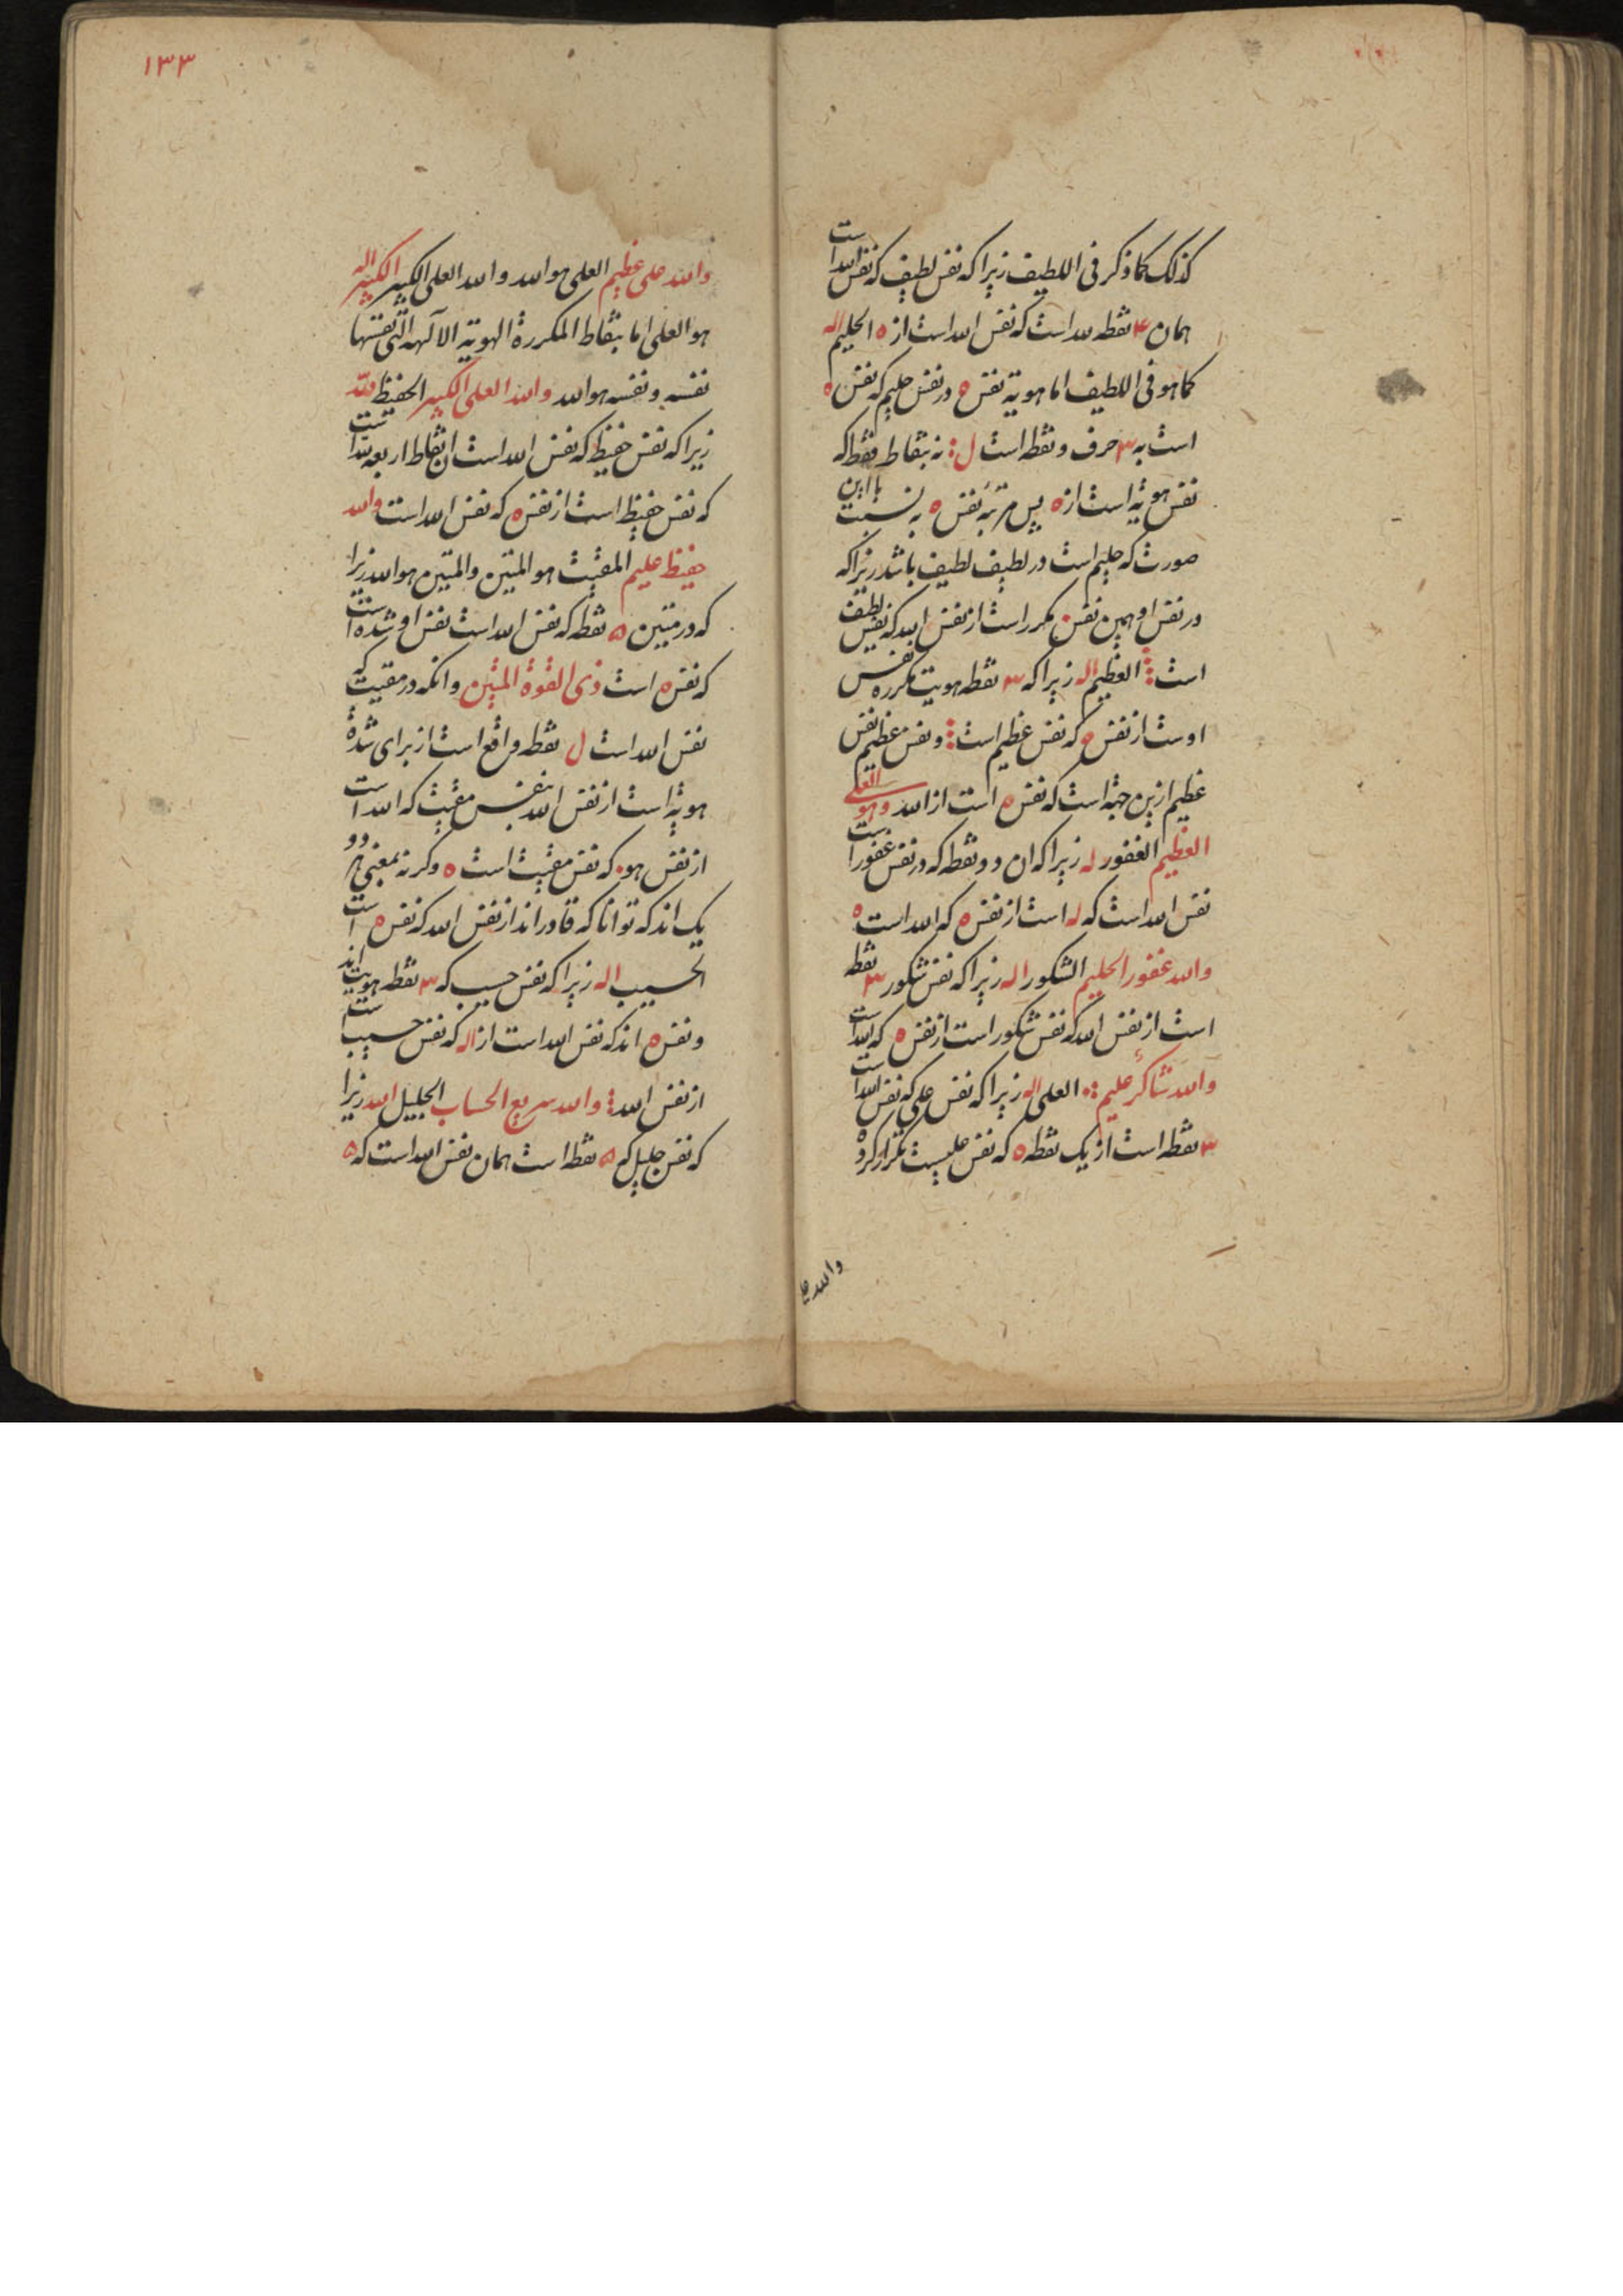 كذلك كما ذكر فی اللطيف زیرا که نفس لطیف که نفس الله است
همان ۴ نقطه لله است که نفس الله است از ه الحلیم اله
کما هو فی اللطیف اما هویة نفس ه در نفس حلیم که نفس ه
است به ۳ حرف و نقطه است ل: نه بنقاط فقط که
نفس هویة است از ه پس مرتبه نفس ه به نسبت با این
صورت که حلیم است در لطیف لطیف باشد زیرا که
در نفس او همین نفس مکرر است از نفس الله که نفس لطیف
است العظیم اله زیرا که ۳ نقطه هویت مکرره نفس
اوست از نفس ه که نفس عظیم است و نفس عظیم نفس
عظیم ازین جهة است که نفس ه است از الله وهو العلی
العظیم الغفور له زیرا که ان دو نقطه که در نفس غفور است
نفس الله است که له است از نفس ه که الله است ه
والله غفور الحلیم الشکور اله زیرا که نفس شکور ۳ نقطه
است از نفس الله که نفس شکور است از نفس ه که الله است
والله شاکر علیم العلی اله زیرا که نفس علی که نفس الله است
۳ نقطه است از یک نقطه ه که نفس علیست تکرار کرده
والله عل
۱۳۳
والله علی عظیم العلی هو الله والله العلی الکبیر الکبیر اله
هو العلی اما بنقاط المکررة الهویة الالهة التی نفسها
نفسه ونفسه هو الله والله العلی الکبیر الحفیظ لله
زیرا که نفس حفیظ که نفس الله است ان نقاط اربعه لله است
که نفس حفیظ است از نفس ه که نفس الله است والله
حفیظ علیم المقیت هو المتین والمتین هو الله زیرا
که در متین ۵ نقطه که نفس الله است نفس او شده است
که نفس ه است ذی القوة المتین وانکه در مقیت که
نفس الله است ل نقطه واقع است از برای شدة
هویة است از نفس الله بنفس مقیت که الله است
از نفس هو که نفس مقیت است ه وکرنه بمعنی هر دو
یک اند که توانا که قادر اند از نفس الله که نفس ه است
الحسیب اله زیرا که نفس حسیب که ۳ نقطه هویت اند
ونفس ه اند که نفس الله است از اله که نفس حسیب است
از نفس الله والله سریع الحساب الجلیل الله زیرا
که نفس جلیل که ۵ نقطه است همان نفس الله است که ۵